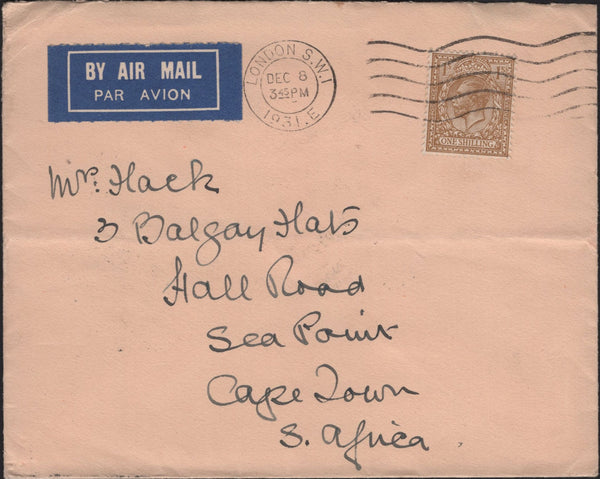 BY AIR MAIL
PAR AVION
LONDON S.W.1
DEC 8
3 45 PM
1931.E
ONE SHILLING
Mr. Hack
3 Balgay Flats
Hall Road
Sea Point
Cape Town
S. Africa